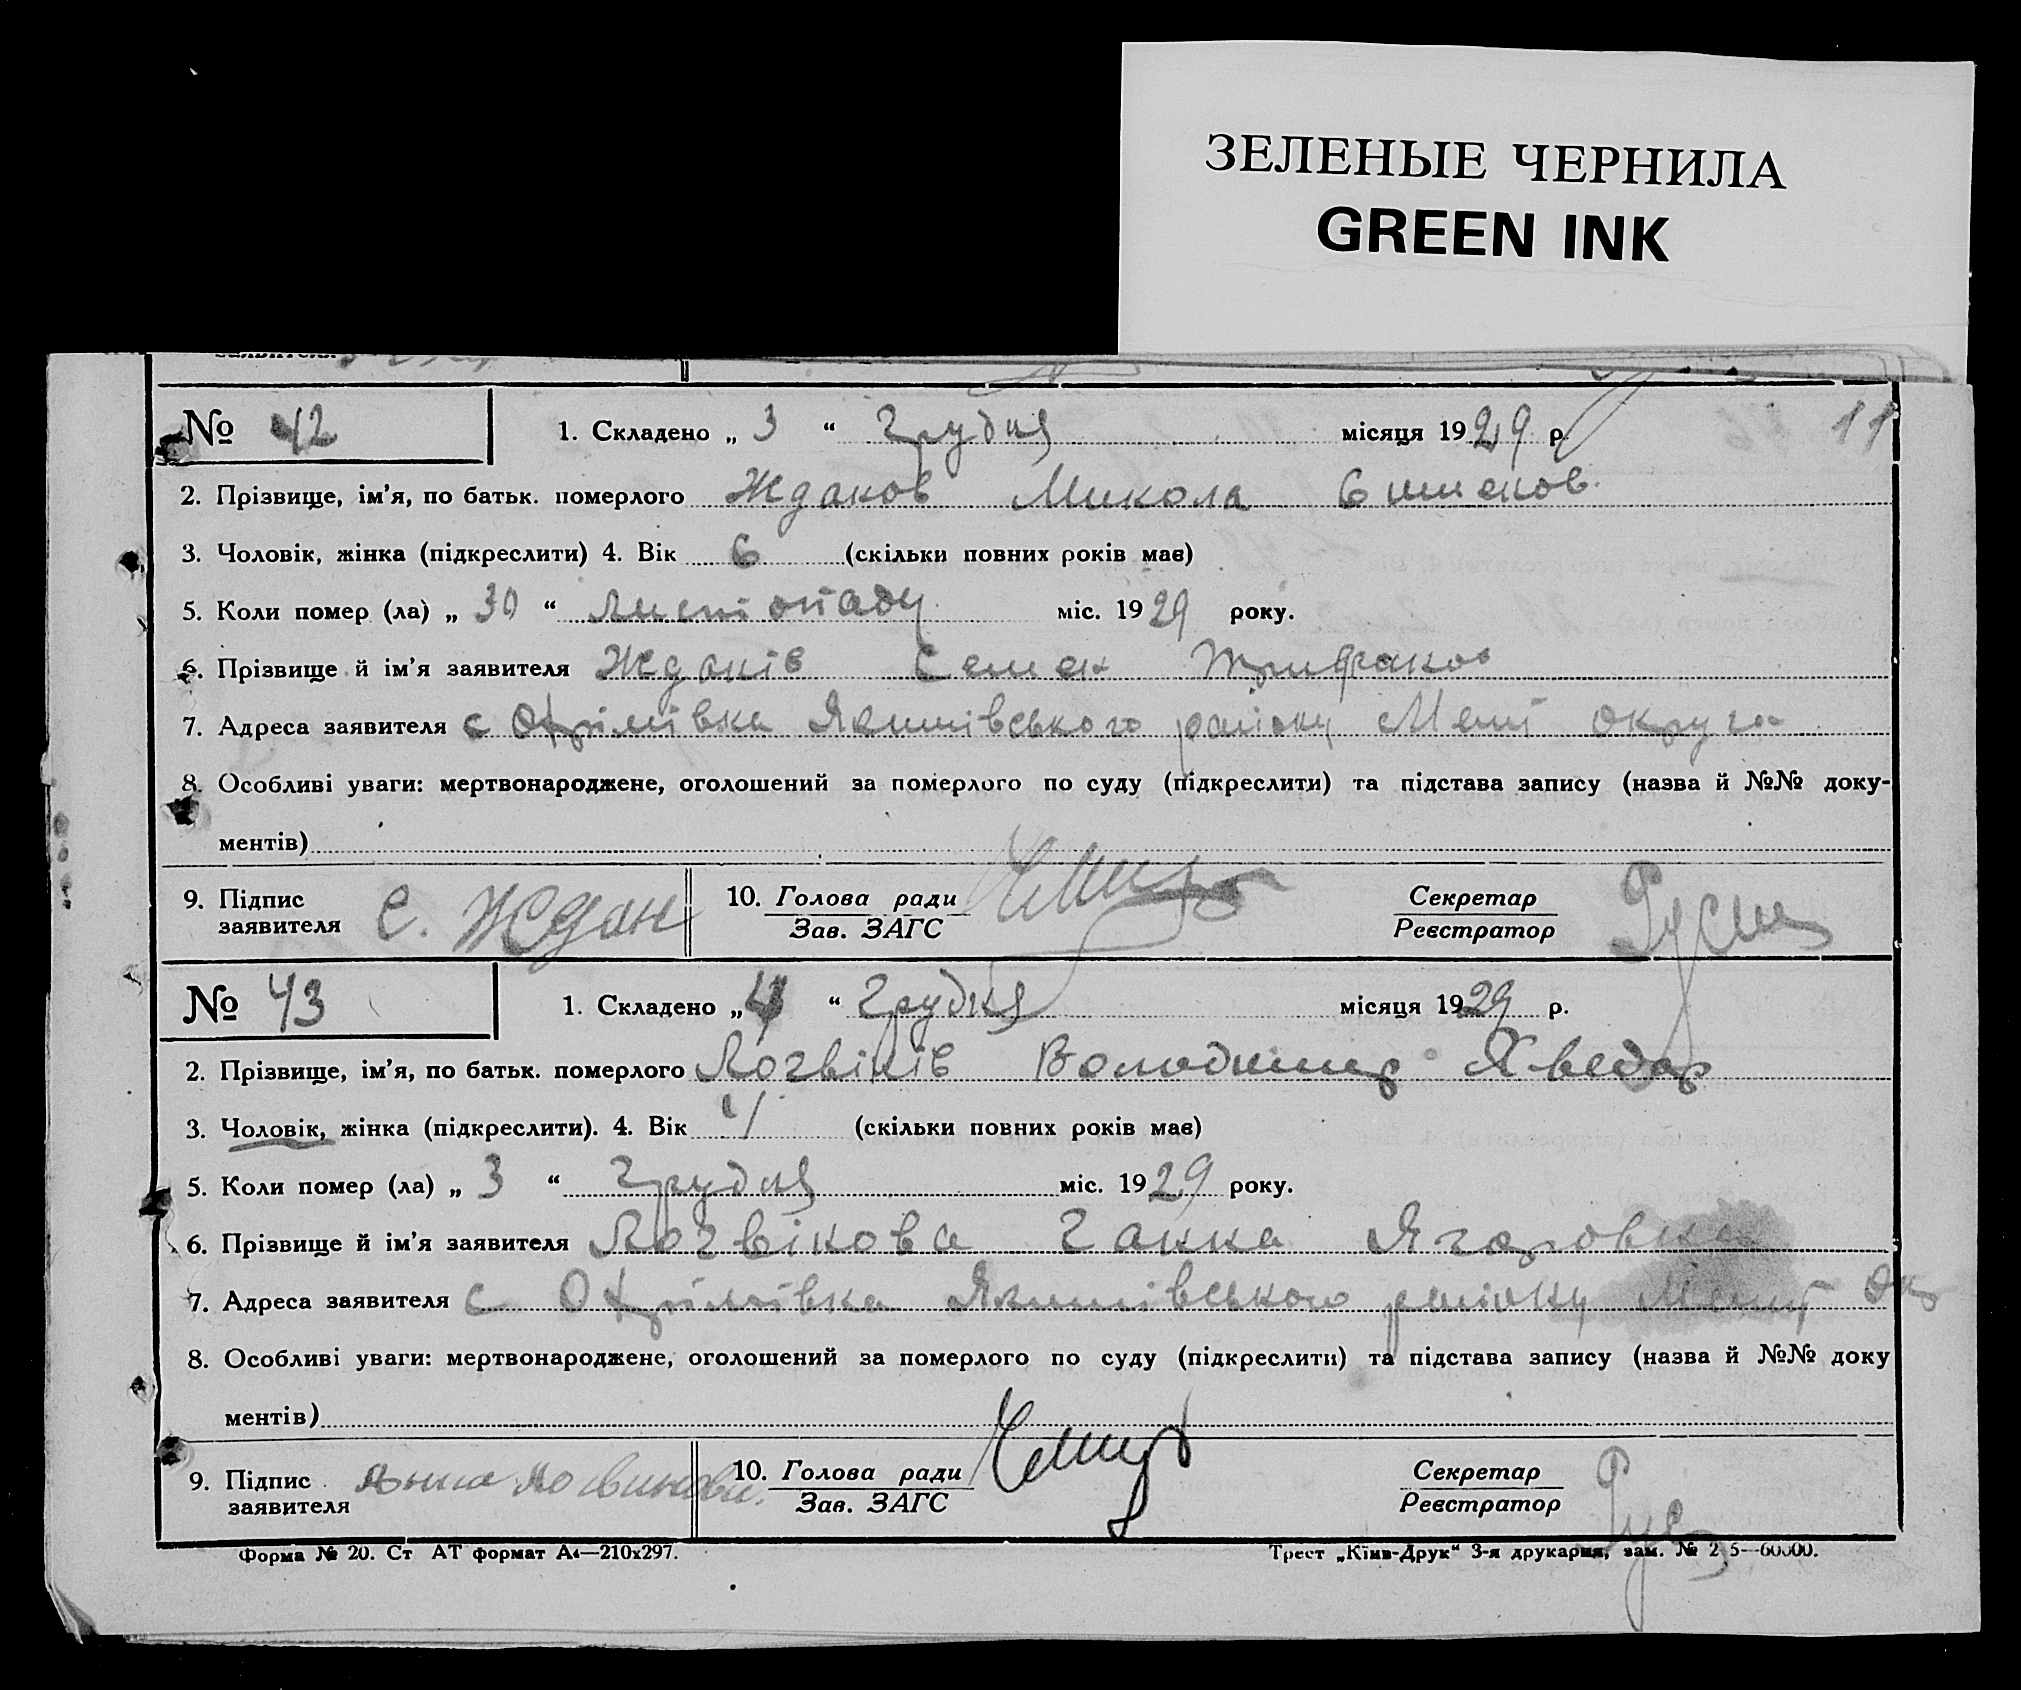 ЗЕЛЕНЫЕ ЧЕРНИЛА
GREEN INK
№ 42 1. Складено „ 3 “ Грудня місяця 1929 р. 11
2. Прізвище, ім’я, по батьк. померлого Жданов Микола Сименов.
3. Чоловік, жінка (підкреслити) 4. Вік 6 (скільки повних років має)
5. Коли помер (ла) „ 30 “ листопаду міс. 1929 року.
6. Прізвище й ім’я заявителя Жданів Семен
7. Адреса заявителя с Охрімівка Якимівського району Меліт округа
8. Особливі уваги: мертвонароджене, оголошений за померлого по суду (підкреслити) та підстава запису (назва й №№ доку-
ментів)
9. Підпис заявителя С. Ждан 10. Голова ради Зав. ЗАГС Секретар Реєстратор
№ 43 1. Складено „ 4 “ Грудня місяця 1929 р.
2. Прізвище, ім’я, по батьк. померлого Логвінів Володимир Хведор
3. Чоловік, жінка (підкреслити). 4. Вік (скільки повних років має)
5. Коли помер (ла) „ 3 “ Грудня міс. 1929 року.
6. Прізвище й ім’я заявителя Логвінова Ганна
7. Адреса заявителя с Охрімівка Якимівського району Меліт Окр
8. Особливі уваги: мертвонароджене, оголошений за померлого по суду (підкреслити) та підстава запису (назва й №№ доку
ментів)
9. Підпис заявителя 10. Голова ради Зав. ЗАГС Секретар Реєстратор
Форма № 20. Ст АТ формат А4—210х297. Трест „Київ-Друк“ 3-я друкарня, зам. №